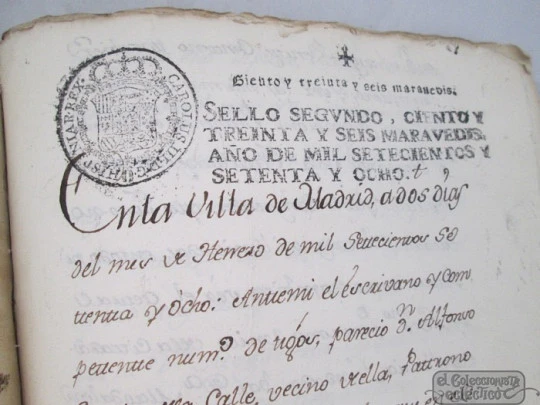 CAROLUS III D. G. HISPANIAR. REX
Ciento y treinta y seis maravedis.
SELLO SEGVNDO, CIENTO Y
TREINTA Y SEIS MARAVEDIS,
AÑO DE MIL SETECIENTOS Y
SETENTA Y OCHO.
Enla Villa de Madrid, a dos dias
del mes de Henero de mil Settecientos Se
tenta y Ocho: Antemi el escrivano y com
petente num.o de tgos, parecio Dn Alfonso
Calle, vecino de ella, Pattrono
el Coleccionista
ecléctico